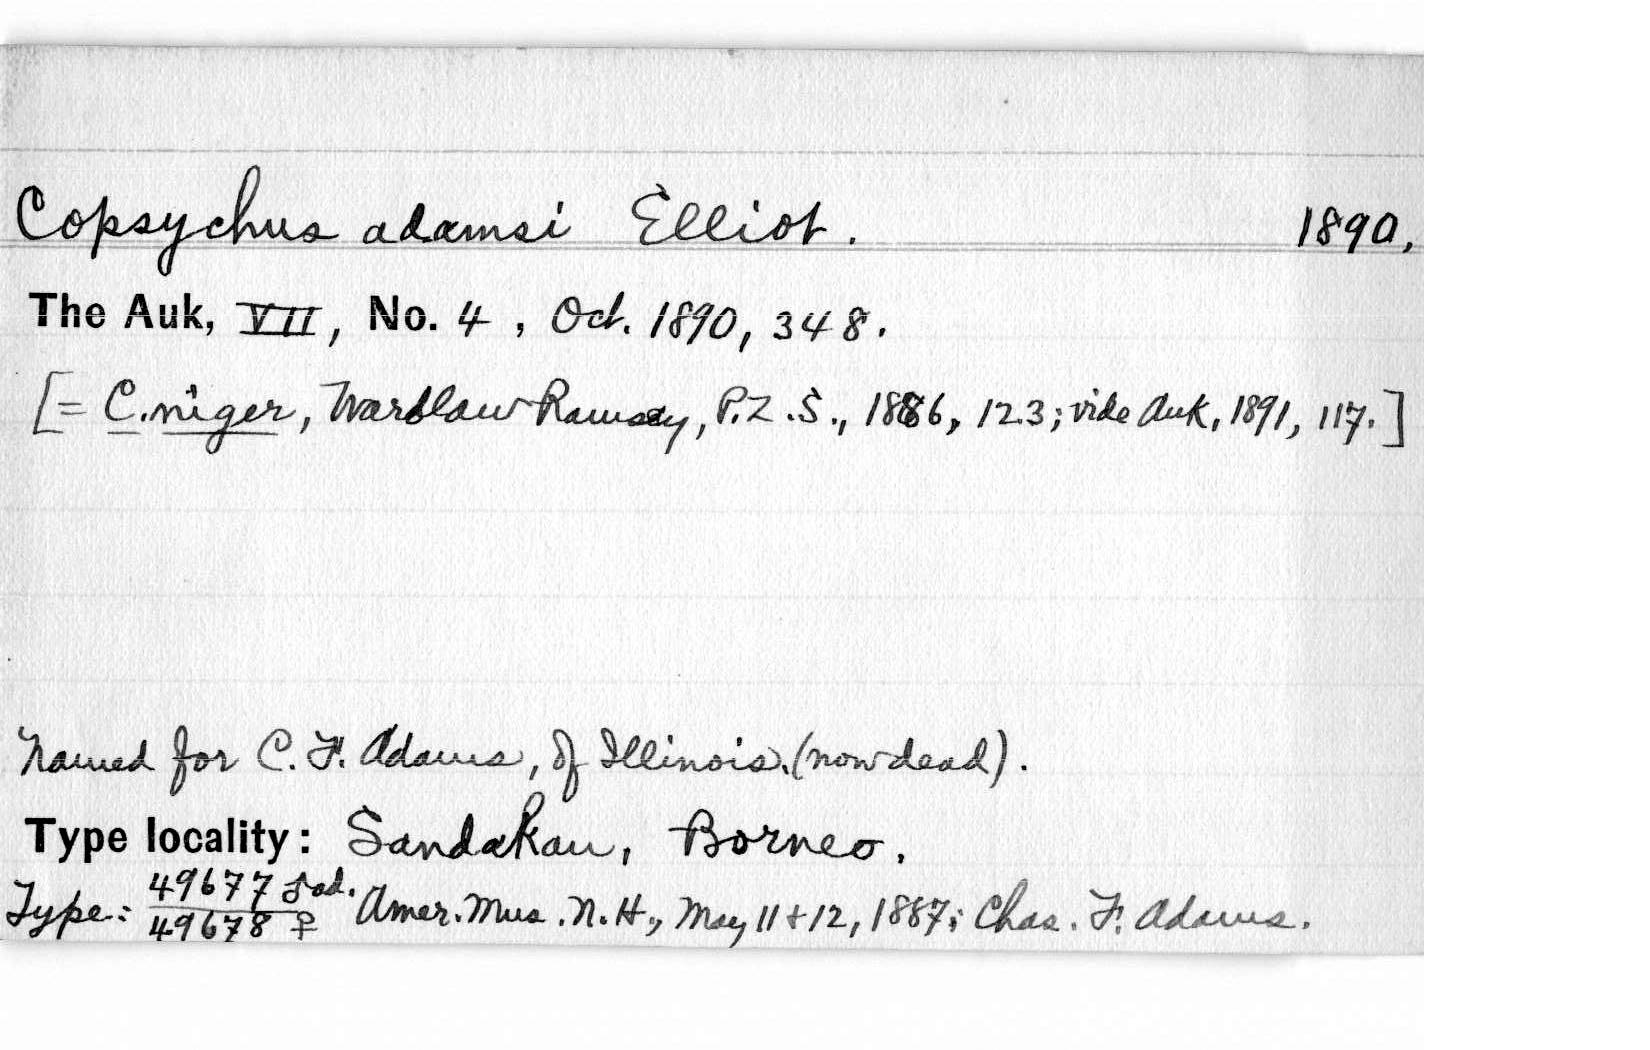 Copsychus adamsi Elliot. 1890.
The Auk, VII, No. 4, Oct. 1890, 348.
[= C. niger, Wardlaw Ramsay, P.Z.S., 1886, 123; vide Auk, 1891, 117.]
Named for C. F. Adams, of Illinois. (now dead).
Type locality: Sandakan, Borneo.
Type: 49677 ♂ ad. / 49678 ♀ Amer. Mus. N. H., May 11 + 12, 1887; Chas. F. Adams.